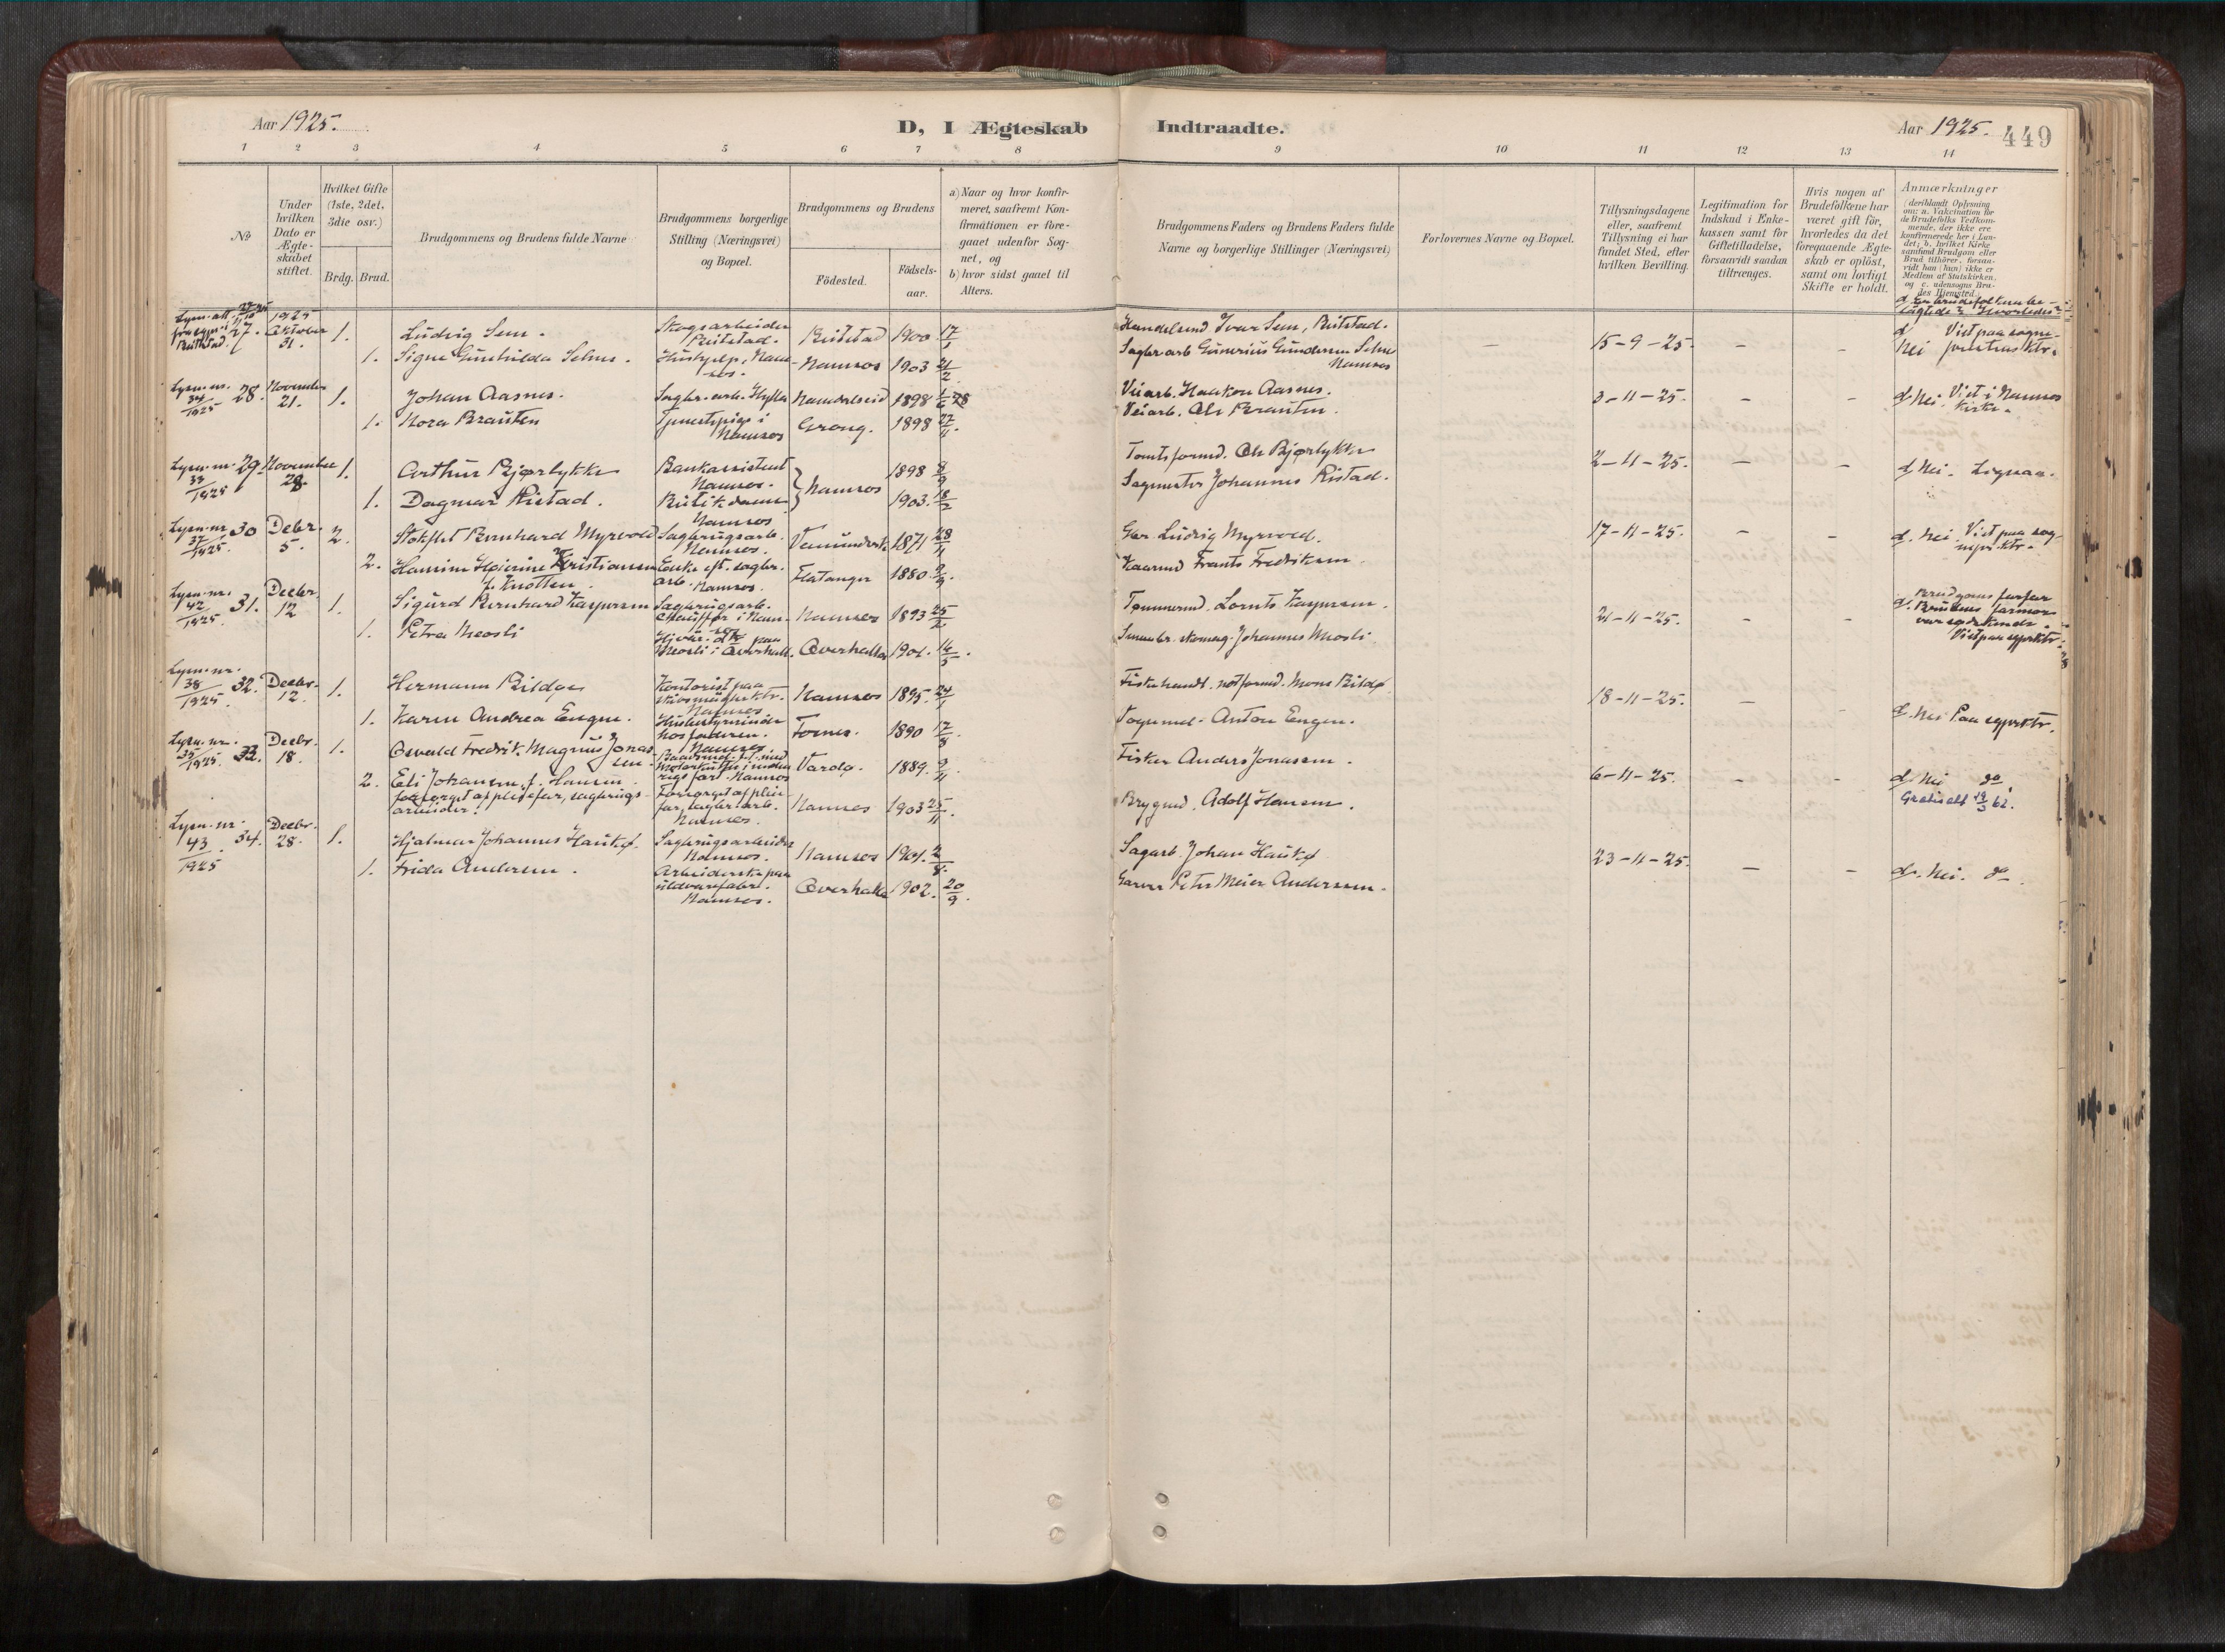 Aar 1925.
D, I Ægteskab Indtraadte.
Aar 1925. 449
1 2 3 4 5 6 7 8 9 10 11 12 13 14
No
Under hvilken Dato er Ægteskabet stiftet.
Hvilket Gifte (1ste, 2det, 3die osv.)
Brdg. Brud.
Brudgommens og Brudens fulde Navne
Brudgommens borgerlige Stilling (Næringsvei) og Bopæl.
Brudgommens og Brudens
Födested.
Födsels-aar.
a) Naar og hvor konfirmeret, saafremt Konfirmationen er foregaaet udenfor Sognet, og
b) hvor sidst gaaet til Alters.
Brudgommens Faders og Brudens Faders fulde Navne og borgerlige Stillinger (Næringsvei)
Forlovernes Navne og Bopæl.
Tillysningsdagene eller, saafremt Tillysning ei har fundet Sted, efter hvilken Bevilling.
Legitimation for Indskud i Enkekassen samt for Giftetilladelse, forsaavidt saadan tiltrænges.
Hvis nogen af Brudefolkene har været gift för, hvorledes da det foregaaende Ægteskab er oplöst, samt om lovligt Skifte er holdt.
Anmærkninger
(deriblandt Oplysning om: a. Vakcination for de Brudefolks Vedkommende, der ikke ere konfirmerede her i Landet; b. hvilket Kirkesamfund Brudgom eller Brud tilhörer, forsaavidt han (hun) ikke er Medlem af Statskirken, og c. udensogns Brudes Hjemsted.)
d. Er brudefolkene beslægtede? Hvorledes?
27. 1925 Oktober 31. 1. Ludvig Sem. Skogsarbeider Beitstad. Beitstad 1900 17/1 Handelsmd Ivar Sem, Beitstad. 15-9-25. d Nei Viet paa sogneprestens ktr.
1. Signe Gunhilda Selnes. Hushjelp, Namsos. Namsos 1903 21/2 Sagbr.arb Gunerius Gundersen Selnes Namsos
Lysn.nr. 34/1925 28. November 21. 1. Johan Aasnes. Sagbr.arb. Hylla Namdalseid 1898 Veiarb. Haakon Aasnes. 3-11-25. d Nei. Viet i Namsos kirke.
1. Nora Brauten Tjenestepige i Namsos Grong. 1898 27/11. Veiarb. Ole Brauten.
Lysn.nr. 33/1925 29. November 28. 1. Arthur Bjørlykke Bankassistent Namsos. Namsos 1898 8/9 Tomteformd. Ole Bjørlykke 2-11-25. d Nei.
1. Dagmar Ristad. Butikdame Namsos 1903. 18/2 Sagmester Johannes Ristad.
Lysn.nr. 37/1925. 30 Decbr. 5. 2. Stokflet Bernhard Myrvold Sagbrugsarb. Namsos. Vemundvik 1871 28/11 Gbr. Ludvig Myrvold. 17-11-25. d. Nei. Viet paa sognepr.ktr.
2. Hansine Kristiansen f. Knotten. Enke eft. sagbr.arb. Namsos. Flatanger 1880. 2/9. Gaarmd Frants Fredriksen.
Lysn.nr. 42/1925 31. Decbr. 12 1. Sigurd Bernhard Kaspersen Sagbrugsarb. Chauffør i Namsos Namsos 1893 25/2 Tømmermd. Lornts Kaspersen. 21-11-25. d. Brudgoms farfar Brudens farmor var sødskende. Viet paa sprktr.
1. Petra Meosli Meosli i Overhall. Overhalla 1901. 16/5. Smaabr. skomag. Johannes Meosli
Lysn.nr. 38/1925. 32. Decbr. 12. 1. Hermann Bildøe Kontorist paa Namsos Namsos 1895. 24/1 Fiskehandl. notformd. Mons Bildø 18-11-25. d. Nei Paa sprktr.
1. Karen Andrea Engen. Husbestyrerinde hos faderen. Namsos Fosnes. 1890 17/8 Vognmd. Anton Engen.
Lysn.nr. 35/1925. 33. Decbr. 18. 1. Osvald Fredrik Magnus Jonassen. Namsos Vardø. 1889. 9/11 Fisker Anders Jonassen. 6-11-25. d. Nei do.
2. Eli Johansen, f. Hansen. Forsørget af pleiefar, sagbr.arb. Namsos. Namsos 1903 25/11. Bryggemd. Adolf Hansen.
forsørget af pleiefar, sagbrugsarbeider.
Lysn.nr. 43/1925 34. Decbr. 28. 1. Hjalmar Johannes Haukø. Sagbrugsarbeider Namsos. Namsos 1901. 2/8. Sagarb. Johan Haukø 23-11-25. d. Nei. do.
1. Frida Andersen. Arbeiderske paa uldvarefabr. Namsos. Overhalla 1902. 20/9. Garver Peter Meier Anderssen.